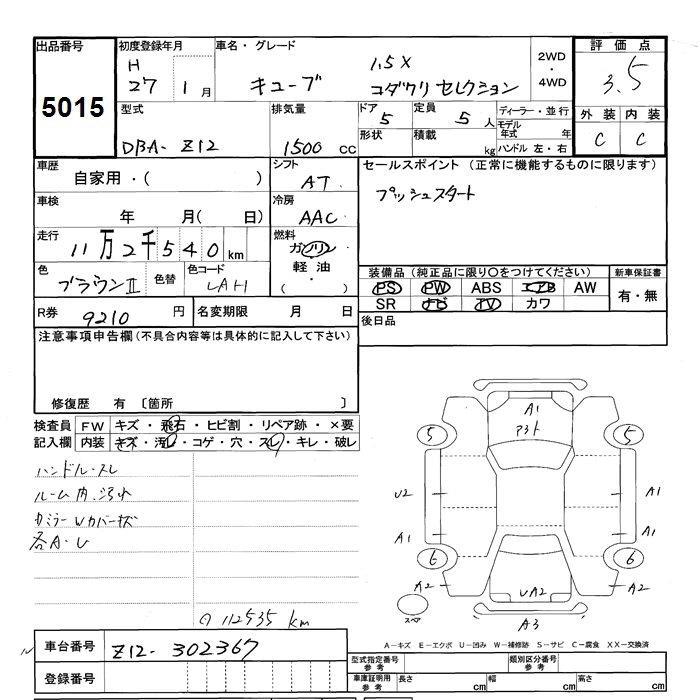 出品番号
5015
初度登録年月
H 27 1月
車名・グレード
キューブ
1.5X
コダワリ セレクション
2WD
・
4WD
評価点
3.5
型式
DBA- Z12
排気量
1500 cc
ドア
5
定員
5人
形状
積載
kg
ディーラー・並行
モデル年式 年
ハンドル 左・右
外装
内装
C
C
車歴
自家用・( )
シフト
AT
セールスポイント (正常に機能するものに限ります)
プッシュスタート
車検
年 月( 日)
冷房
AAC
走行
11万2千540km
燃料
ガソリン
軽油
( )
色
ブラウンⅡ
色替
色コード
LAH
装備品 (純正品に限り○をつけてください)
新車保証書
PS PW ABS エアB AW
有・無
SR ナビ TV カワ
R券
9210円
名変期限 月 日
後日品
注意事項申告欄 (不具合内容等は具体的に記入して下さい)
修復歴 有 〔箇所 〕
検査員記入欄
FW キズ・飛石・ヒビ割・リペア跡・×要
内装 キズ・汚レ・コゲ・穴・スレ・キレ・破レ
ハンドル・スレ
ルーム内・汚れ
カミラーUカバーキズ
各A・U
112535 km
A1
5
5
U2
A1
A1
A1
6
6
A2
A2
UA2
スペア
A3
車台番号
Z12- 302367
登録番号
A-キズ E-エクボ U-凹み W-補修跡 S-サビ C-腐食 XX-交換済
型式指定番号 参考
類別区分番号 参考
車庫証明用 参考
長さ cm
幅 cm
高さ cm